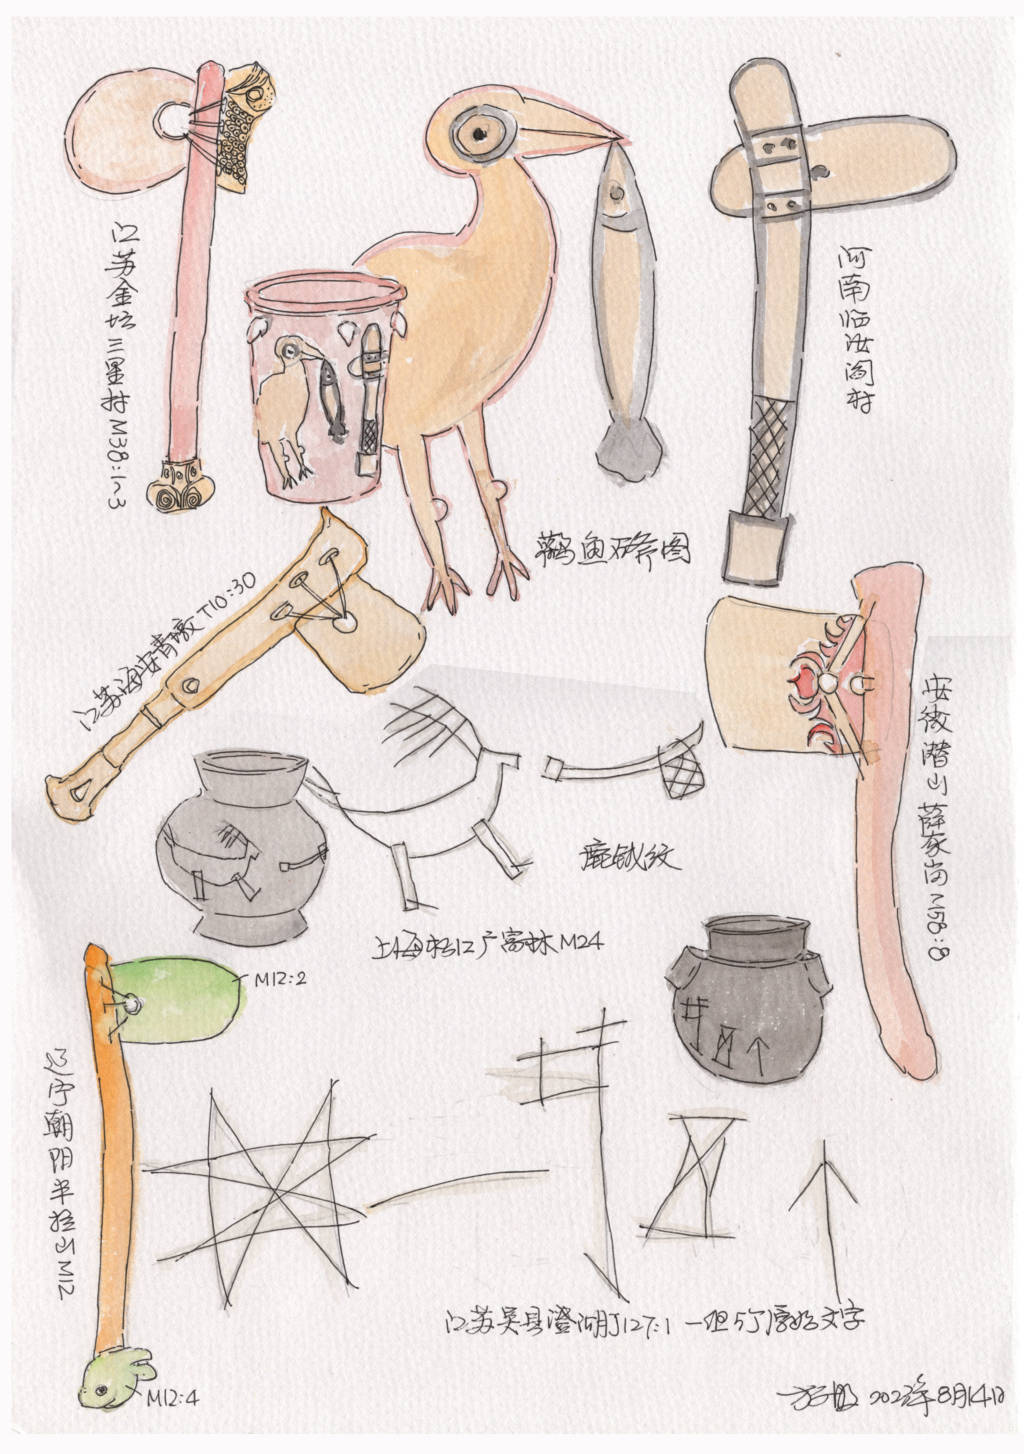 江苏金坛三星村M38:1~3
河南临汝阎村
鹳鱼石斧图
江苏海安青墩T10:30
安徽潜山薛家岗M58:8
鹿钺纹
上海松江广富林M24
M12:2
辽宁朝阳半拉山M12
M12:4
江苏吴县澄湖J127:1 一组5个原始文字
2023年8月14日